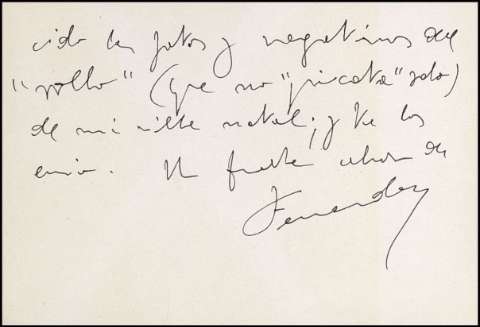 cido las fotos y negativos del
"rollo" (que no "picota" solo)
de mi villa natal; y te los
envio. Un fuerte abrazo de